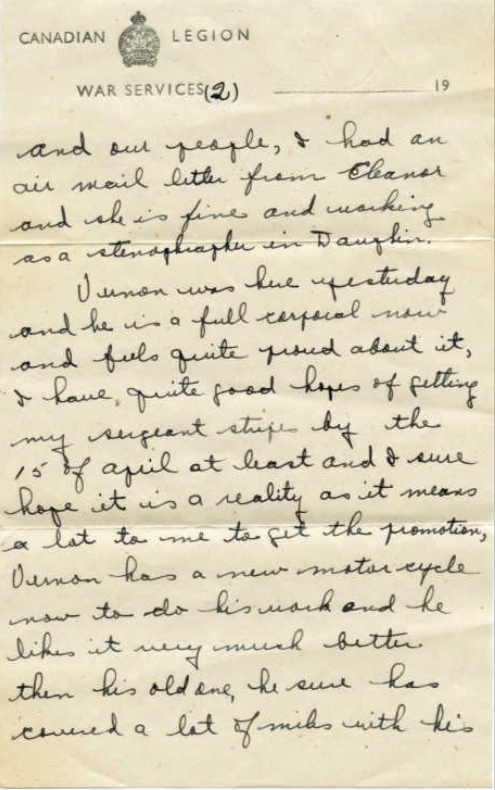 CANADIAN LEGION
WAR SERVICES (2) 19
and our people, I had an
air mail letter from Eleanor
and she is fine and working
as a stenographer in Dauphin.
Vernon was here yesterday
and he is a full corporal now
and feels quite proud about it,
I have, quite good hopes of getting
my sergeant stripes by the
15 of april at least and I sure
hope it is a reality as it means
a lot to me to get the promotion,
Vernon has a new motor cycle
now to do his work and he
likes it very much better
then his old one, he sure has
covered a lot of miles with his